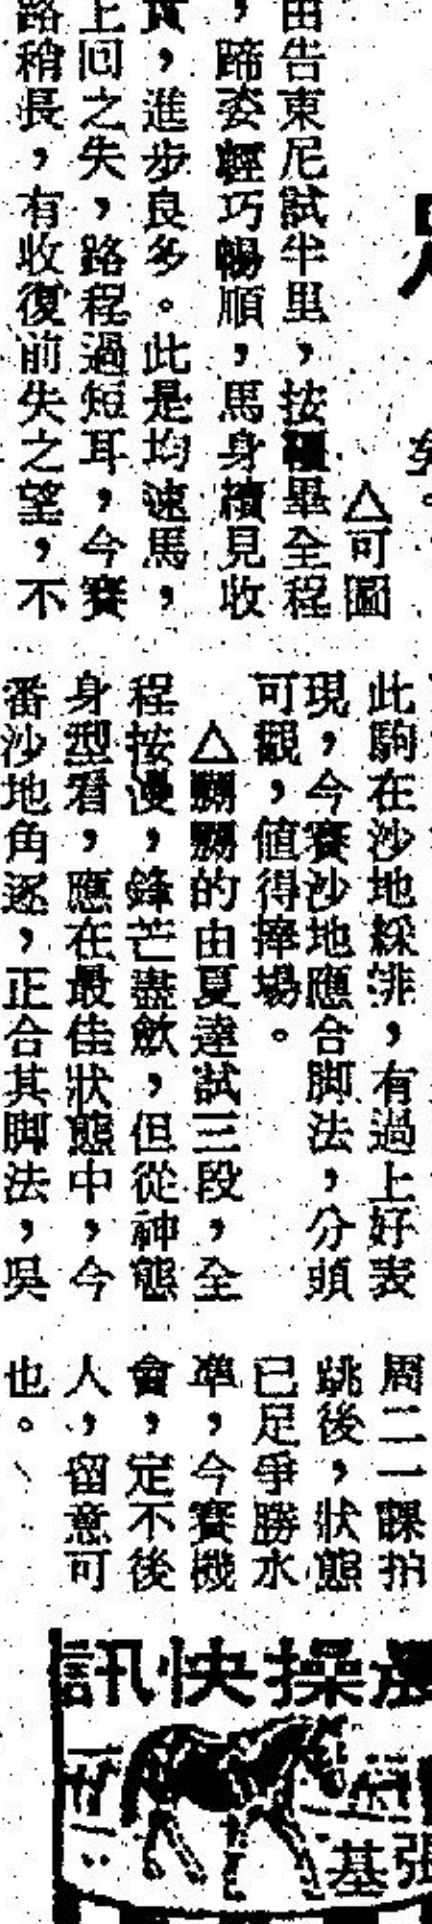 矣。
△可圖
由告東尼試半里，按轡畢全程
，蹄姿輕巧暢順，馬身續見收
實，進步良多。此是均速馬，
上回之失，路程過短耳，今賽
路稍長，有收復前失之望，不
此駒在沙地綵排，有過上好表
現，今賽沙地應合脚法，分頭
可觀，值得捧場。
△的由夏達試三段，全
程按漫，鋒芒盡歛，但從神態
身型看，應在最佳狀態中，今
番沙地角逐，正合其脚法，吳
周二一課拍
跳後，狀態
已足爭勝水
準，今賽機
會，定不後
人，留意可
也。
晨操快訊
張基